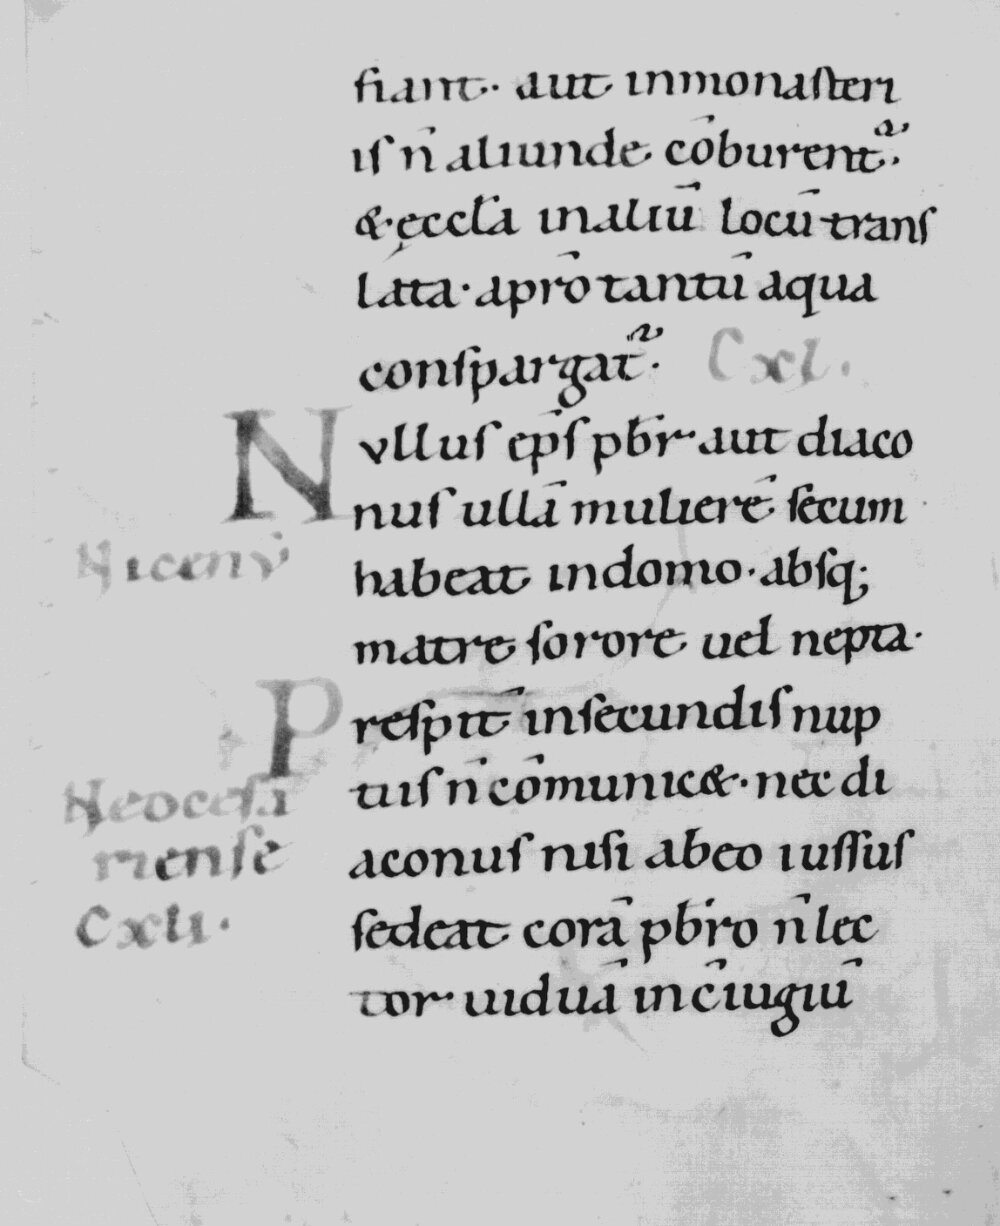 fiant· aut inmonasteri
is n̄ aliunde cōburent᷑·
&·ęccl̄a inaliū locū trans
lata· aprō tantū aqua
conspargat᷑· Cxl.
Nullus ep̄s pb̄r aut diaco
nus ullā mulierē secum
Nicenū
habeat indomo· absq;
matre sorore uel nepta·
Presp̄it insecundis nup
tiis n̄ cōmunic&· nec di
Neocesa
aconus nisi abeo iussus
riense
sedeat corā pb̄ro n̄ lec
Cxli·
tor uiduā inc̄iugiū